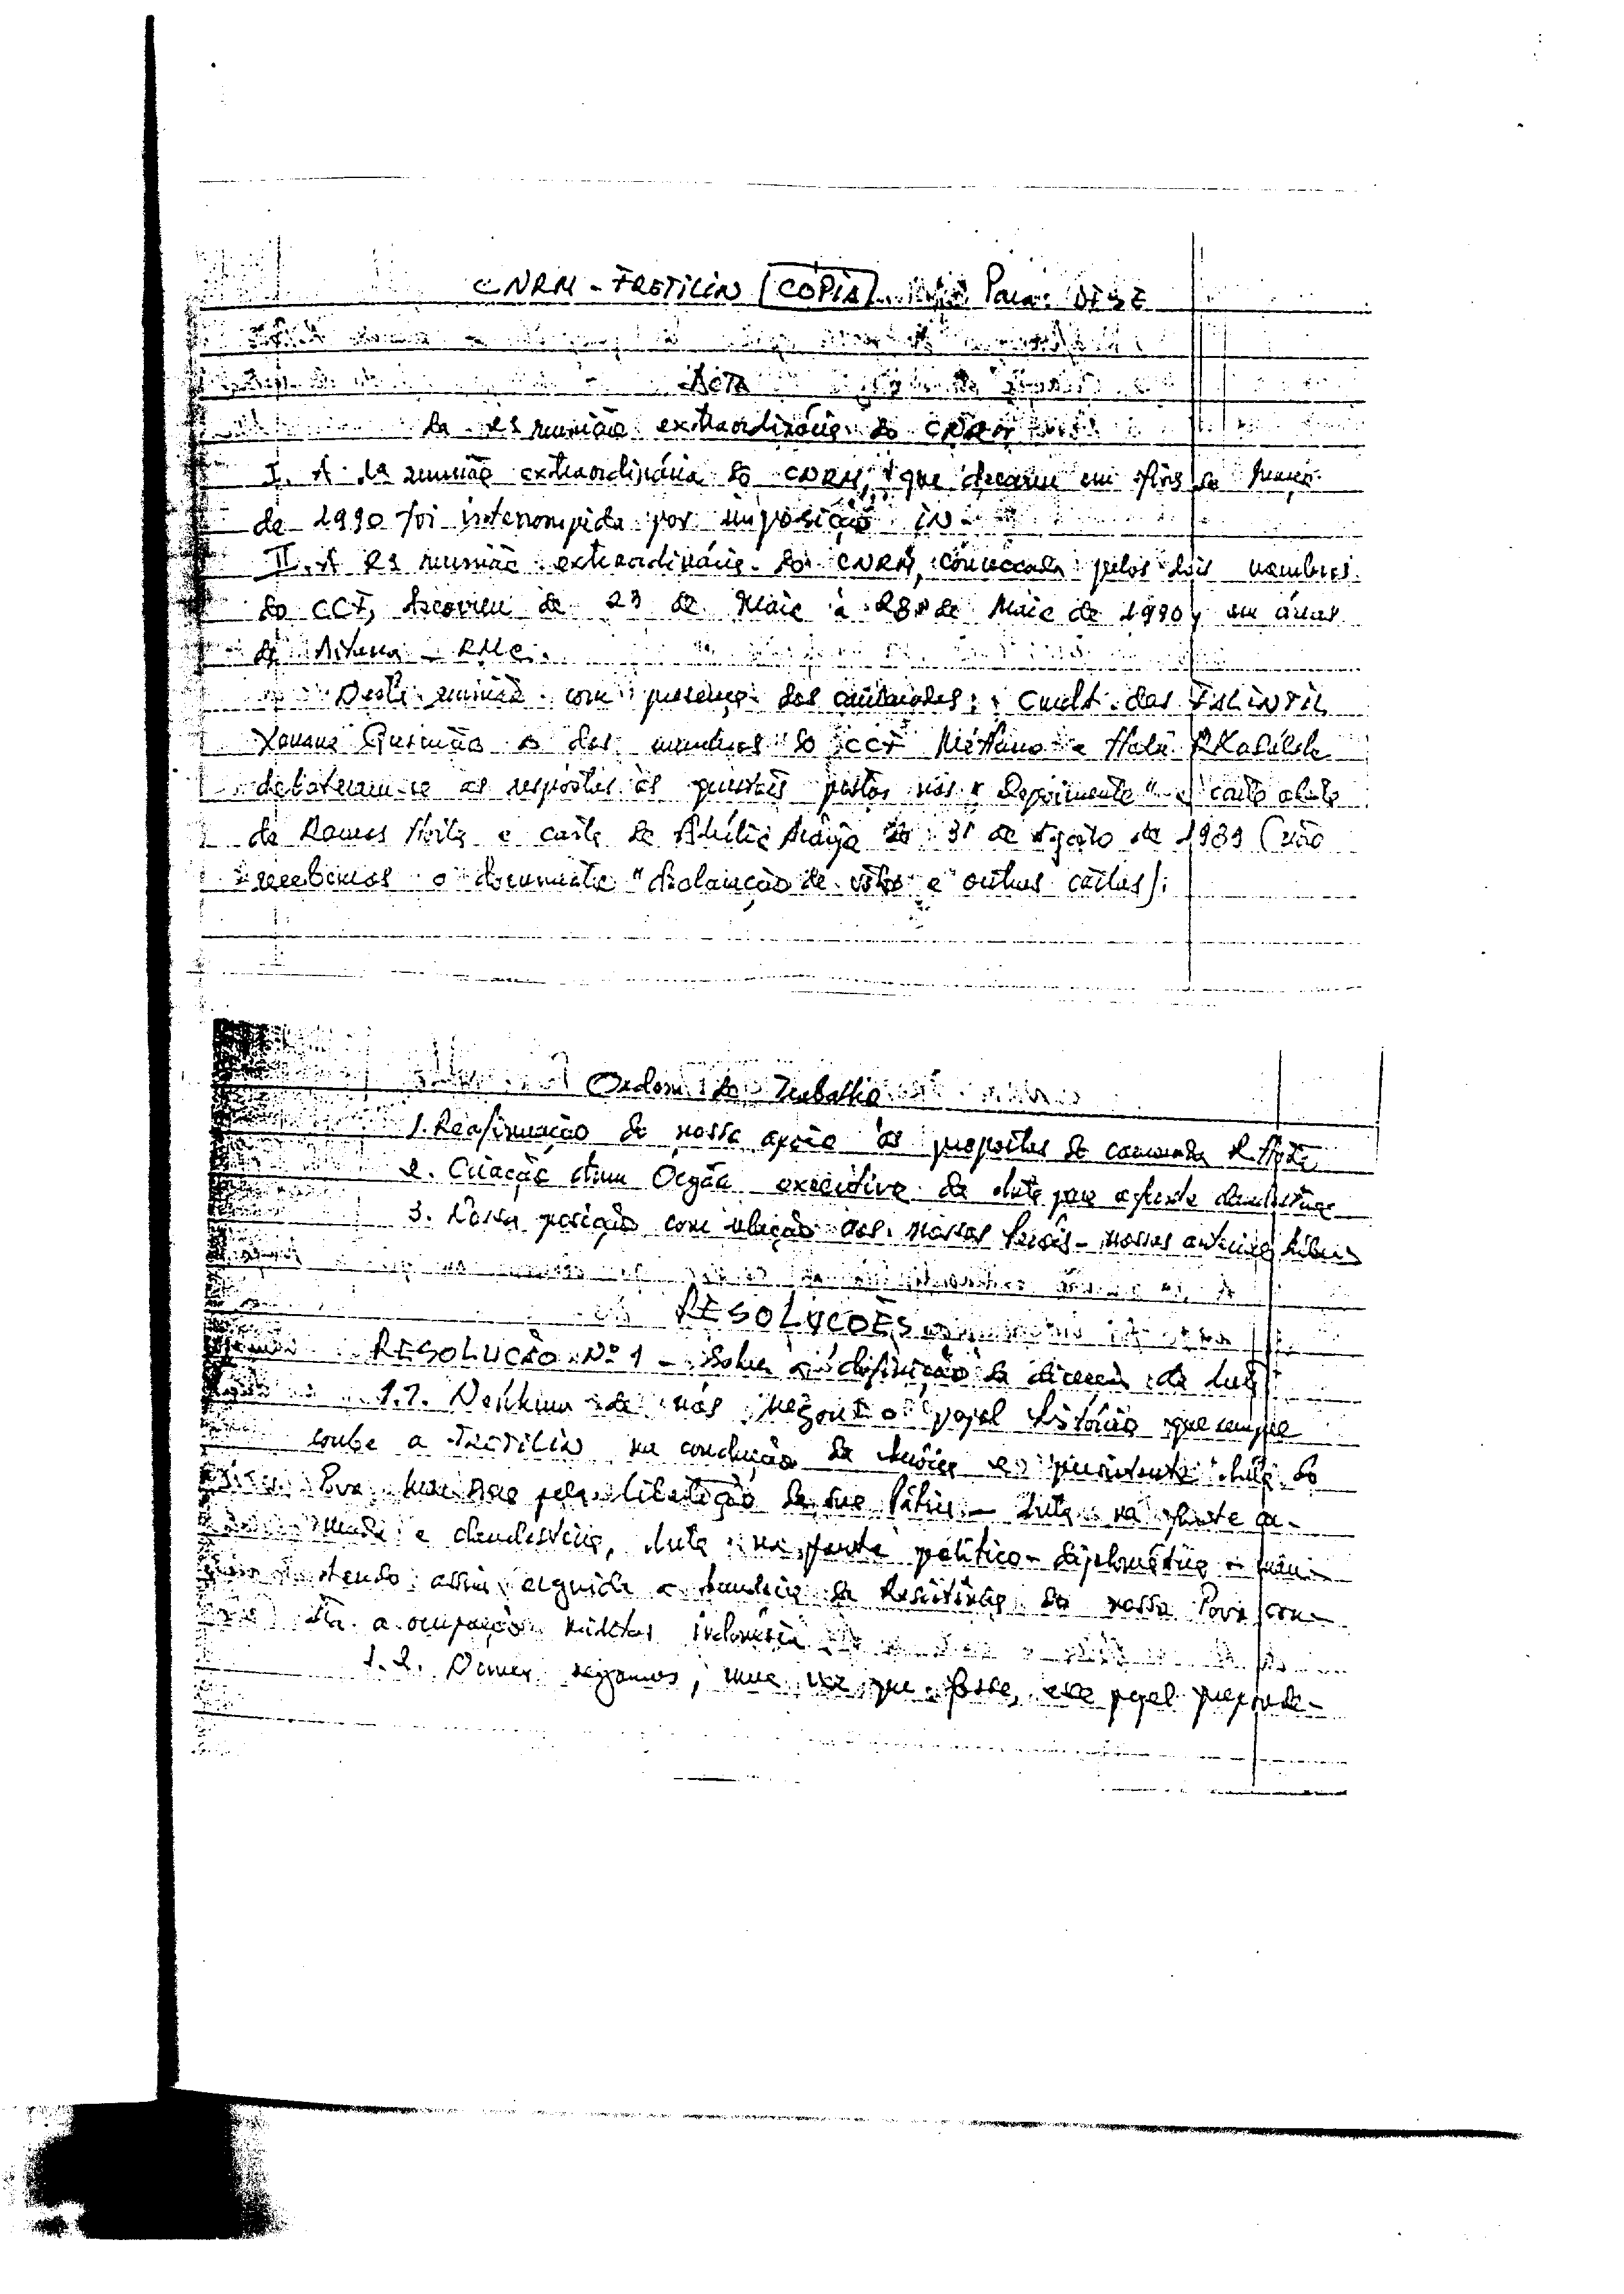 CNRM - FRETILIN COPIA Para: DFSE
Acta
da 2ª reunião extraordinária do CNRM
I. A 1ª reunião extraordinária do CNRM, que decorreu em fins de Março
de 1990 foi interrompida por imposição IN
II. A 2ª reunião extraordinária do CNRM, convocada pelos dois membros
do CCF, decorreu de 23 de Maio a 28 de Maio de 1990, em áreas
de
Nesta reunião com presença dos camaradas: Cmdt. das FALINTIL
Xanana Gusmão e dos membros do CCF Ma'Huno e
debateram-se as respostas às questões postas nos "Depoimento" e carta aberta
de Ramos Horta e carta de Abílio Araújo de 31 de Agosto de 1989 (não
recebemos o documento "declaração de voto e outras cartas):
Ordem de Trabalho
1. Reafirmação do nosso apoio às propostas do camarada R. Horta
2. Criação dum Orgão executivo da luta para a frente clandestina
3. Nossa posição com relação aos nossos
RESOLUÇÕES
RESOLUÇÃO Nº 1 - Sobre a definição da direcção da luta
1.1. Nenhum de nós negou o papel histórico que sempre
coube a FRETILIN na condução da heróica e persistente luta do
Povo Maubere pela libertação da sua Pátria - luta na frente ar-
mada e clandestina, luta na frente político-diplomática - man-
tendo assim erguida a bandeira da Resistência do nosso Povo con-
tra a ocupação militar indonésia
1.2. Nunca negamos, uma vez que fosse, esse papel preponde-